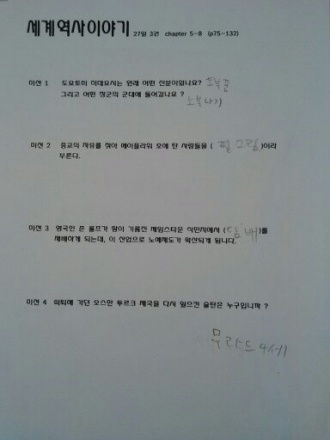 세계역사이야기 27일 3권 chapter 5-8 (p75-132)
미션 1 도요토미 히데요시는 원래 어떤 신분이었나요?
그리고 어떤 장군의 군대에 들어갔나요 ? 노부나가
미션 2 종교의 자유를 찾아 메이플라워 호에 탄 사람들을 ( 필그림 )이라
부른다.
미션 3 영국인 존 롤프가 많이 기름진 제임스타운 식민지에서 ( 담배 )를
재배하게 되는데, 이 산업으로 노예제도가 확산되게 됩니다.
미션 4 쇠퇴해 가던 오스만 투르크 제국을 다시 일으킨 술탄은 누구입니까 ?
무라드 4세